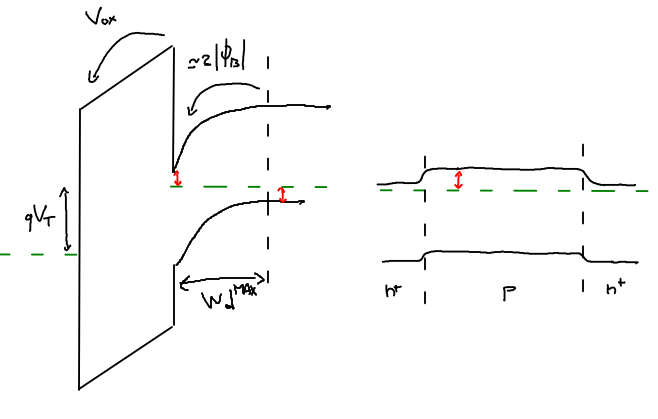 Vox
≃2|ϕB|
qVT
Wd MAX
n+ P n+